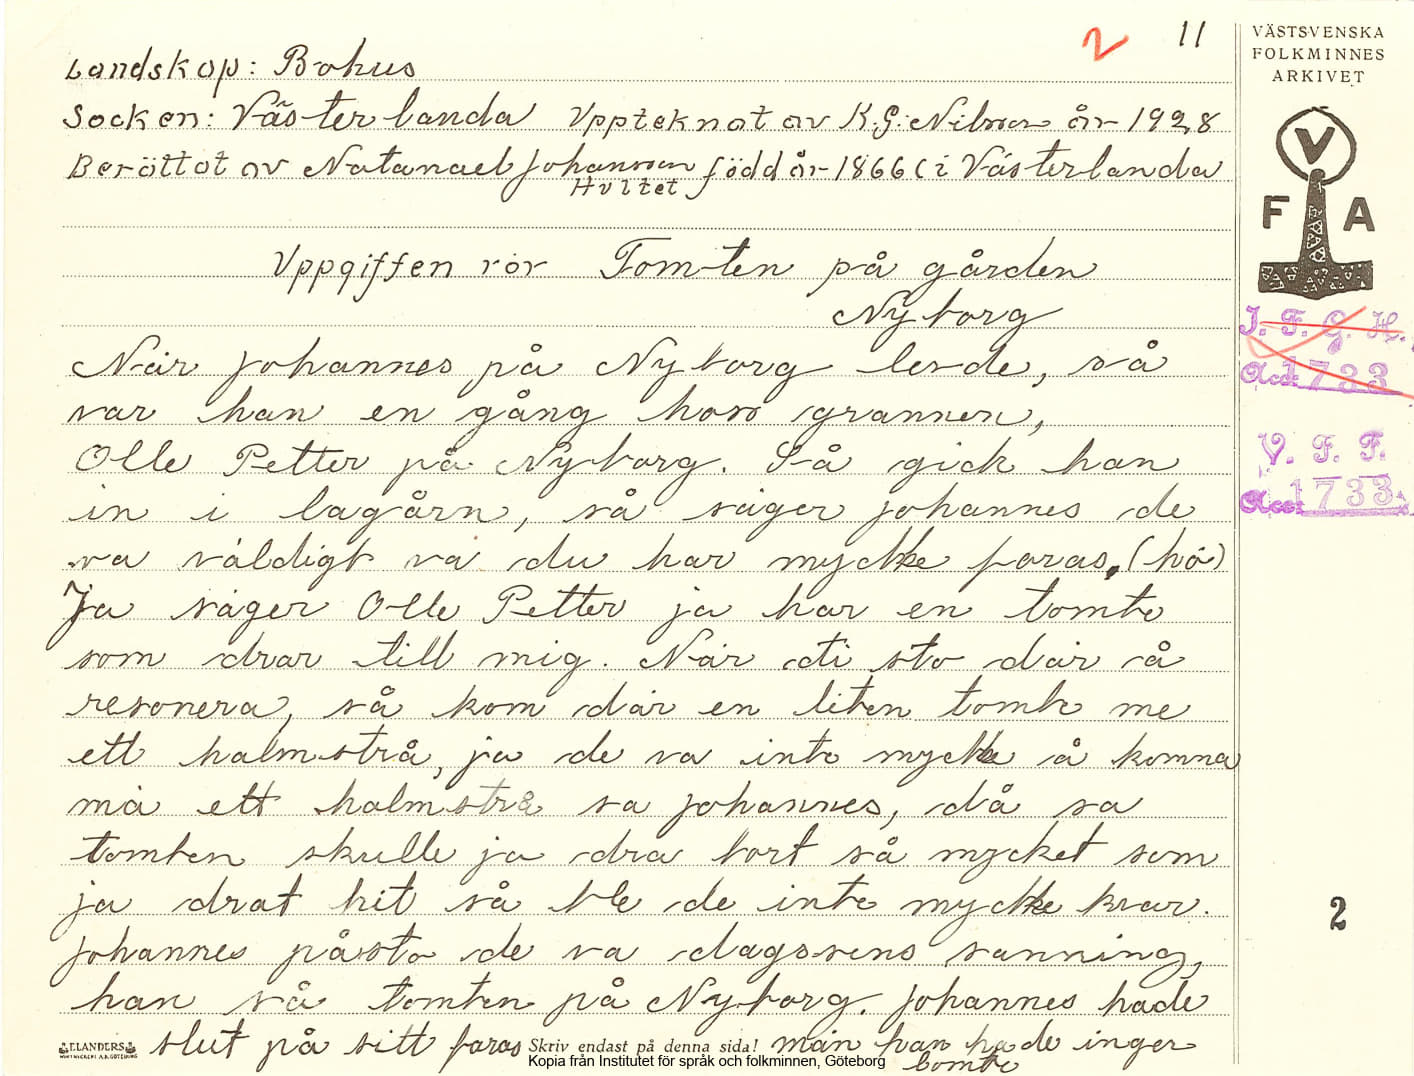 2 11
Landskap: Bohus
Socken: Västerlanda Upptecknat av K.G. Nilsson år 1928
Berättat av Natanael Johansson född år 1866 i Västerlanda
Hultet
Uppgiften rör Tomten på gården
Nyborg
När Johannes på Nyborg levde, så
var han en gång hos grannen,
Olle Petter på Nyborg. Så gick han
in i lagårn, så säger Johannes de
va väldigt va du har mycke foras, (hö)
Ja säger Olle Petter ja har en tomte
som drar till mig. När di sto där å
resonera, så kom där en liten tomte me
ett halmstrå, ja de va inte mycke å komma
mä ett halmstrå sa Johannes, då sa
tomten skulle ja dra bort så mycket som
ja drat hit så ble de inte mycke kvar.
Johannes påsto de va dagsens sanning,
han så tomten på Nyborg. Johannes hade
slut på sitt foras män han hade ingen
tomte
VÄSTSVENSKA
FOLKMINNES
ARKIVET
V
F A
I. F. G. H.
Acc. 1733
V. F. F.
Acc. 1733
2
ELANDERS
Skriv endast på denna sida!
Kopia från Institutet för språk och folkminnen, Göteborg